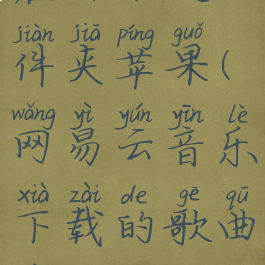 jiàn jiā píng guǒ
件夹苹果(
wǎng yì yún yīn lè
网易云音乐
xià zài de gē qū
下载的歌曲